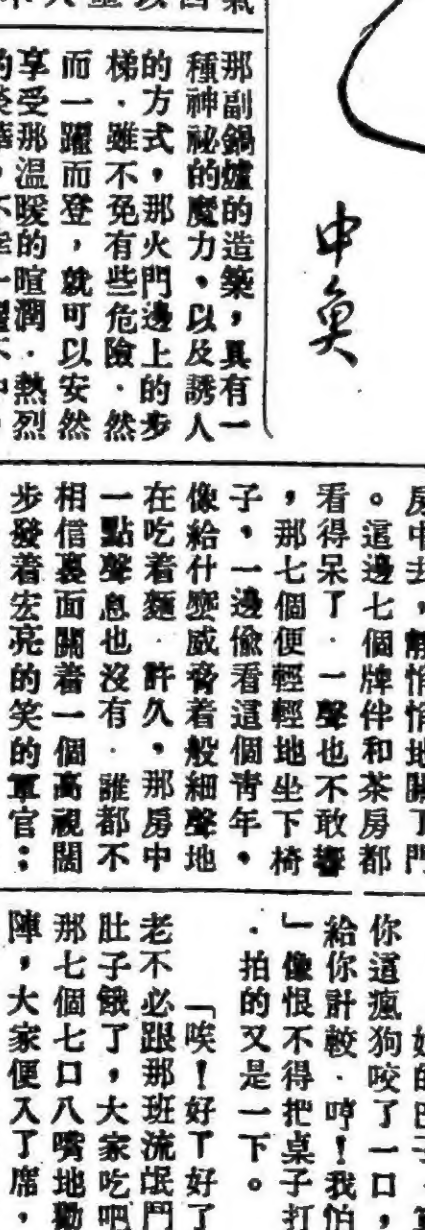 那副鍋爐的造築，具有一
種神祕的魔力，以及誘人
的方式，那火門邊上的步
梯．雖不免有些危險．然
而一躍而登，就可以安然
享受那温暖的暄潤．熱烈
房中去，靜悄悄地關了門
。這邊七個牌伴和茶房都
看得呆了．一聲也不敢響
，那七個便輕輕地坐下椅
子，一邊偷看這個青年，
像給什麽威脅着般細聲地
在吃着麵．許久，那房中
一點聲息也沒有．誰都不
相信裏面關着一個高視闊
步發着宏亮的笑的軍官：
你這瘋狗咬了一口，
給你計較．哼！我怕
」像恨不得把桌子打
．拍的又是一下。
「唉！好了好了
老不必跟那班流氓鬥
肚子餓了，大家吃吧
那七個七口八嘴地勸
陣，大家便入了席，